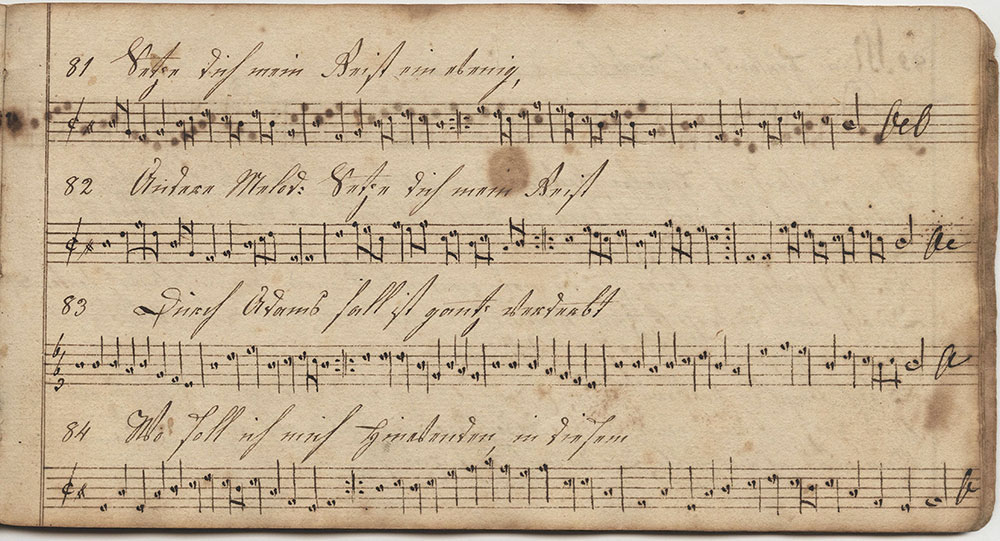 81 Setze dich mein Geist ein wenig,
82 Andere Melod: Setze dich mein Geist
83 Durch Adams fall ist gantz verderbt
84 Wo soll ich mich hinwenden, in diesem